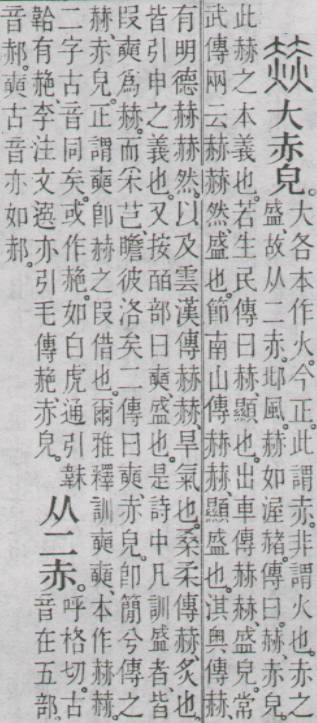 赫大赤皃。
大各本作火。今正。此謂赤。非謂火也。赤之
盛。故从二赤。邶風。赫如渥赭。傳曰。赫、赤皃。
此赫之本義也。若生民傳曰。赫、顯也。出車傳赫赫、盛皃。常
武傳兩云赫赫然、盛也。節南山傳赫赫、顯盛也。淇奧傳赫、
有明德赫赫然。以及雲漢傳赫赫、旱氣也。桑柔傳赫、炙也。
皆引申之義也。又按皕部曰。奭、盛也。是詩中凡訓盛者、皆
叚奭爲赫。而采芑、瞻彼洛矣二傳曰。奭、赤皃。卽簡兮傳之
赫、赤皃。正謂奭卽赫之叚借也。爾雅釋訓奭奭、本作赫赫。
二字古音同矣。或作赩。如白虎通引韎
韐有赩。李注文選亦引毛傳赩、赤皃。
从二赤。
呼格切。古
音在五部。
音郝。奭古音亦如郝。